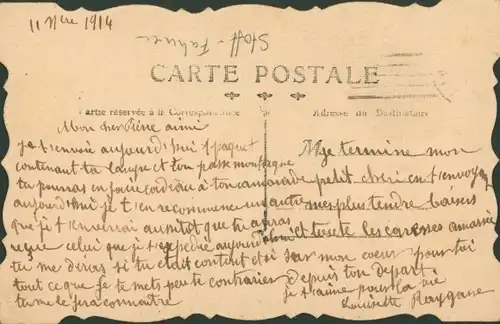 11 9bre 1914
Stoff - Fahnen
CARTE POSTALE
Partie réservée à la Correspondance
Adresse du Destinataire
Mon cher Pierre aimé
je t'envoie aujourd'hui 1 paquet
contenant ta lampe et ton passe montagne
tu pourras en faire cordeau à ton camarade
aujourd'hui je t'en recommence un autre
que je t'enverrai aussitot que tu auras
reçue celui que je t'expedre aujourd'hui
tu me diras si tu etait content et si
tout ce que je te mets peu te contrarier
tu me le fera connaitre
Je termine mon
petit cheri en t'envoyant
mes plus tendre baisers
et toute les caresses amassé
sur mon coeur pour toi
depuis ton depart
je t'aime pour la vie
Louisette